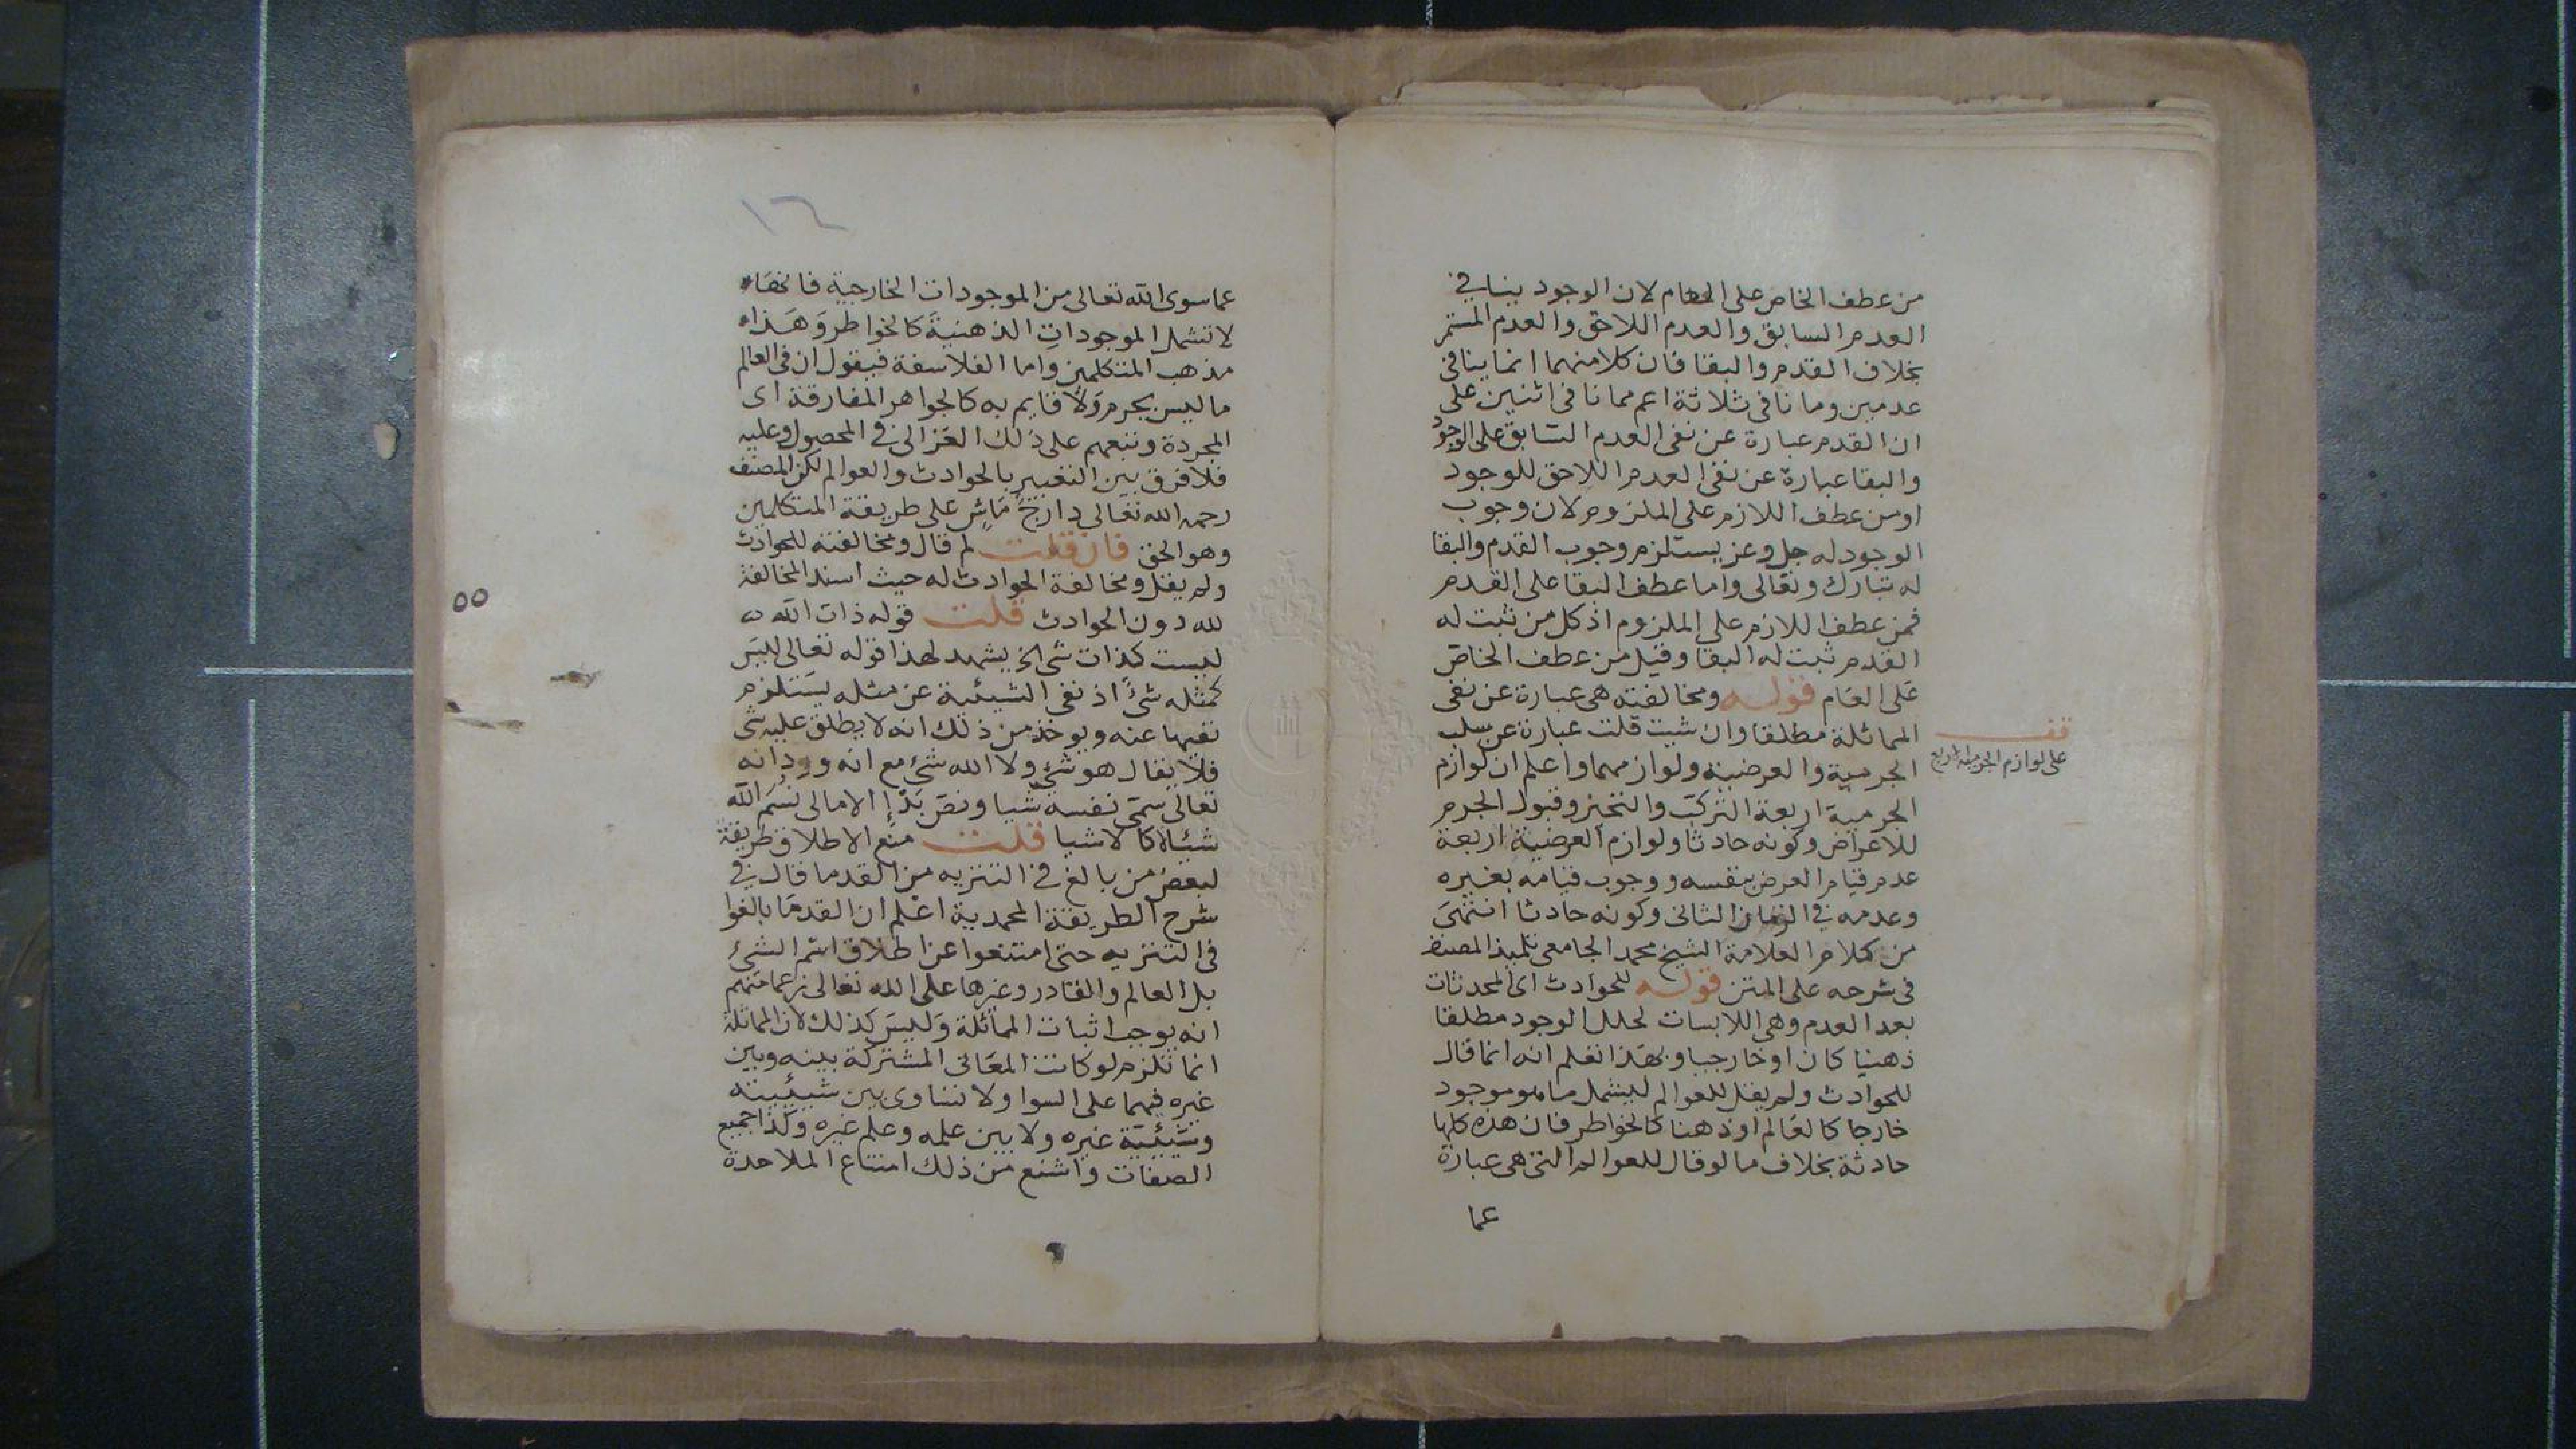 من عطف الخاص على العام لان الوجود ينافي
العدم السابق والعدم اللاحق والعدم المستمر
بخلاف القدم والبقا فان كلا منهما انما ينافى
عدمين وما نافى ثلاثة اعم مما نافى اثنين على
ان القدم عبارة عن نفى العدم السابق على الوجود
والبقا عبارة عن نفى العدم اللاحق للوجود
او من عطف اللازم على الملزوم لان وجوب
الوجود له جل وعز يستلزم وجوب القدم والبقا
له تبارك وتعالى واما عطف البقا على القدم
فمن عطف اللازم على الملزوم اذ كل من ثبت له
القدم ثبت له البقا وقيل من عطف الخاص
على العام قوله ومخالفته هى عبارة عن نفى
المماثلة مطلقا وان شيت قلت عبارة عن سلب
الجرمية والعرضية ولوازمهما واعلم ان لوازم
الجرمية اربعة التركب والتحيز وقبول الجرم
للاعراض وكونه حادثا ولوازم العرضية اربعة
عدم قيام العرض بنفسه ووجوب قيامه بغيره
وعدمه في الزمان الثانى وكونه حادثا انتهى
من كلام العلامة الشيخ محمد الجامعى تلميذ المصنف
فى شرحه على المتن قوله للحوادث اى المحدثات
بعد العدم وهى اللابسات لحلل الوجود مطلقا
ذهنيا كان او خارجيا وبهذا تعلم انه انما قال
للحوادث ولم يقل للعوالم ليشمل ما هو موجود
خارجا كالعالم او ذهنا كالخواطر فان هذه كلها
حادثة بخلاف ما لو قال للعوالم التى هى عبارة
عما
قف
على لوازم الجرمية اربع
١٦
عما سوى الله تعالى من الموجودات الخارجية فانها
لا تشمل الموجودات الذهنية كالخواطر وهذا
مذهب المتكلمين واما الفلاسفة فيقول ان فى العالم
ما ليس بجرم ولا قايم به كالجواهر المفارقة اى
المجردة وتبعهم على ذلك الغزالى في المحصول وعليه
فلا فرق بين التعبير بالحوادث والعوالم لكن المصنف
رحمه الله تعالى دارج ماش على طريقة المتكلمين
وهو الحق فان قلت لم قال ومخالفته للحوادث
ولم يقل ومخالفة الحوادث له حيث اسند المخالفة
لله دون الحوادث قلت قوله ذات الله
ليست كذات شى الخ يشهد لهذا قوله تعالى ليس
كمثله شئ اذ نفى الشيئية عن مثله يستلزم
نفيها عنه ويوخذ من ذلك انه لا يطلق عليه شى
فلا يقال هو شئ ولا الله شئ مع انه ورد انه
تعالى سمى نفسه شيا ونص بدإ الامالى نسم الله
شيئا لا كالاشيا قلت منع الاطلاق طريقة
لبعض من بالغ في التنزيه من القدما قال في
شرح الطريقة المحمدية اعلم ان القدما بالغوا
فى التنزيه حتى امتنعوا عن اطلاق اسم الشئ
بل العالم والقادر وغيرها على الله تعالى زعما منهم
انه يوجب اثبات المماثلة وليس كذلك لان المماثلة
انما تلزم لو كانت المعانى المشتركة بينه وبين
غيره فيهما على السوا ولا تساوى بين شيئيته
وشيئية غيره ولا بين علمه وعلم غيره وكذا جميع
الصفات واشنع من ذلك امتناع الملاحدة
٥٥